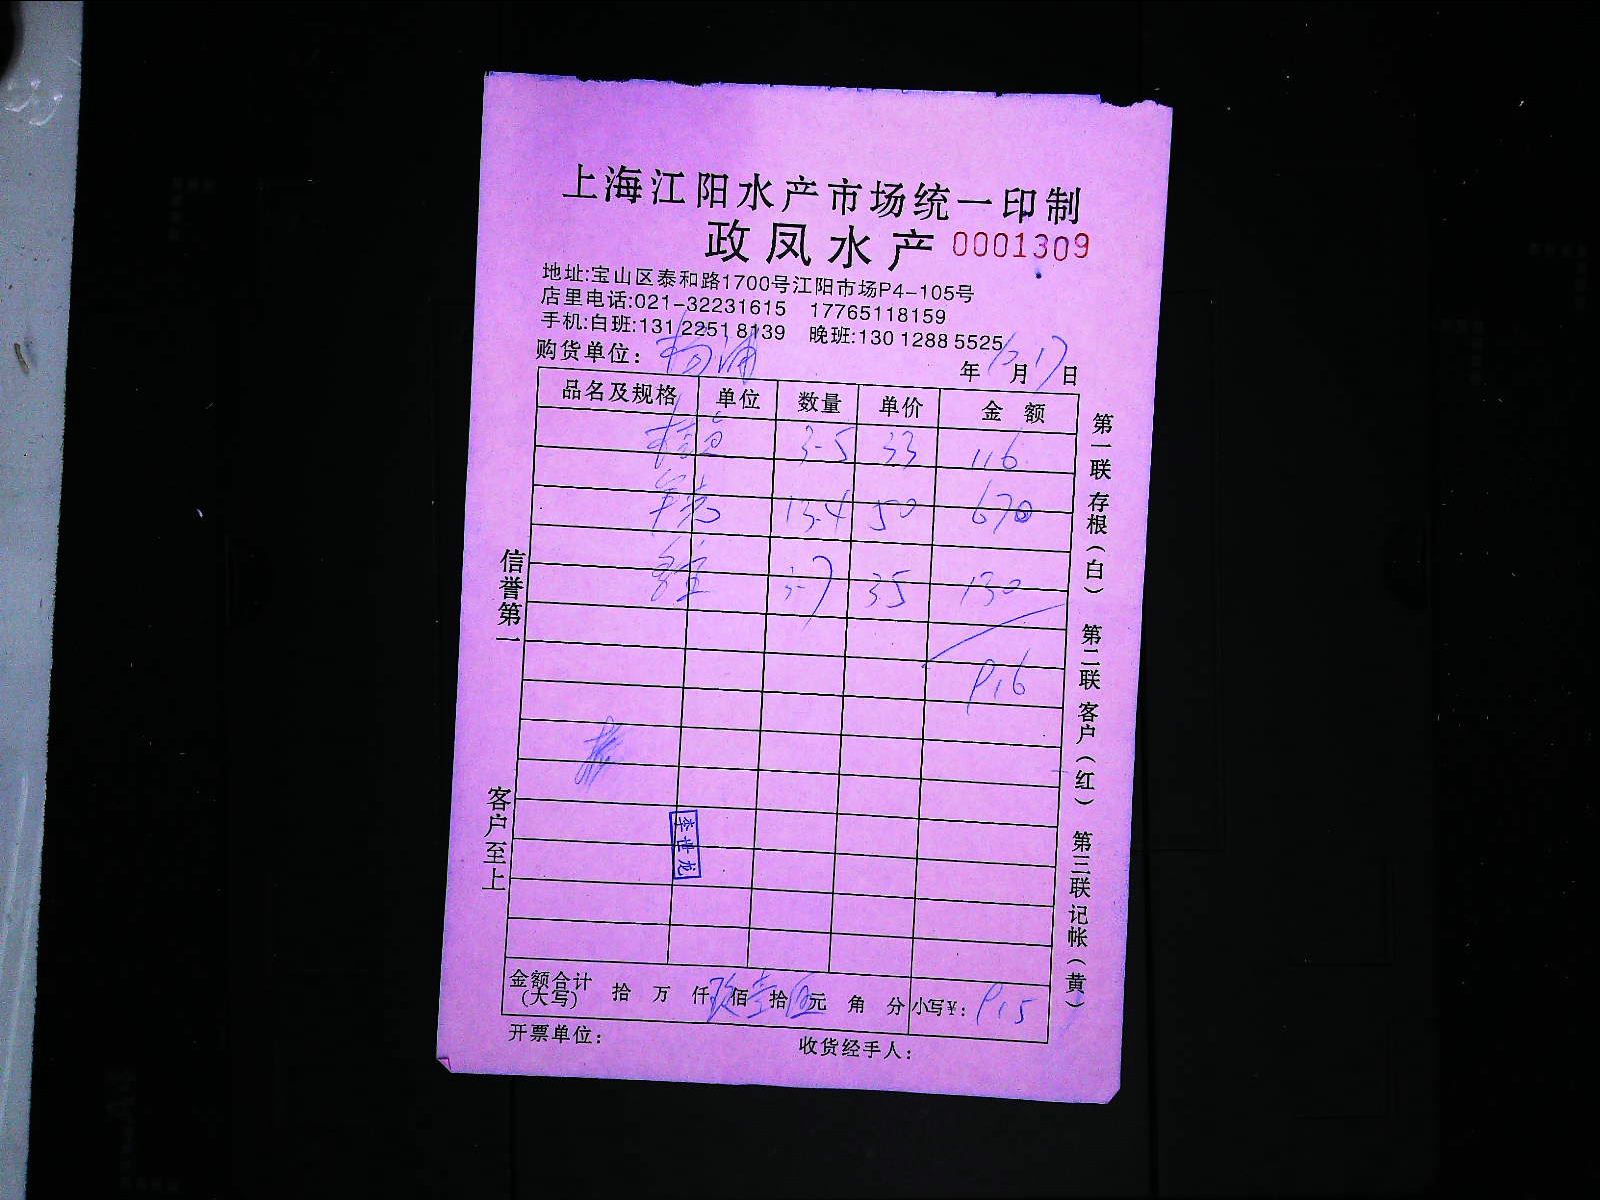 上海江阳水产市场统一印制
政凤水产 0001309
地址:宝山区泰和路1700号江阳市场P4-105号
店里电话:021-32231615 17765118159
手机:白班:131 2251 8139 晚班:130 1288 5525
购货单位: 杨浦 年12月17日
品名及规格 单位 数量 单价 金额
3-5 33 116
13.4 50 670
3-7 35 130
916
李世龙
金额合计(大写) 拾 万 仟玖佰壹拾伍元 角 分 小写¥: 915
开票单位: 收货经手人:
信誉第一
客户至上
第一联 存根(白) 第二联 客户(红) 第三联 记帐(黄)